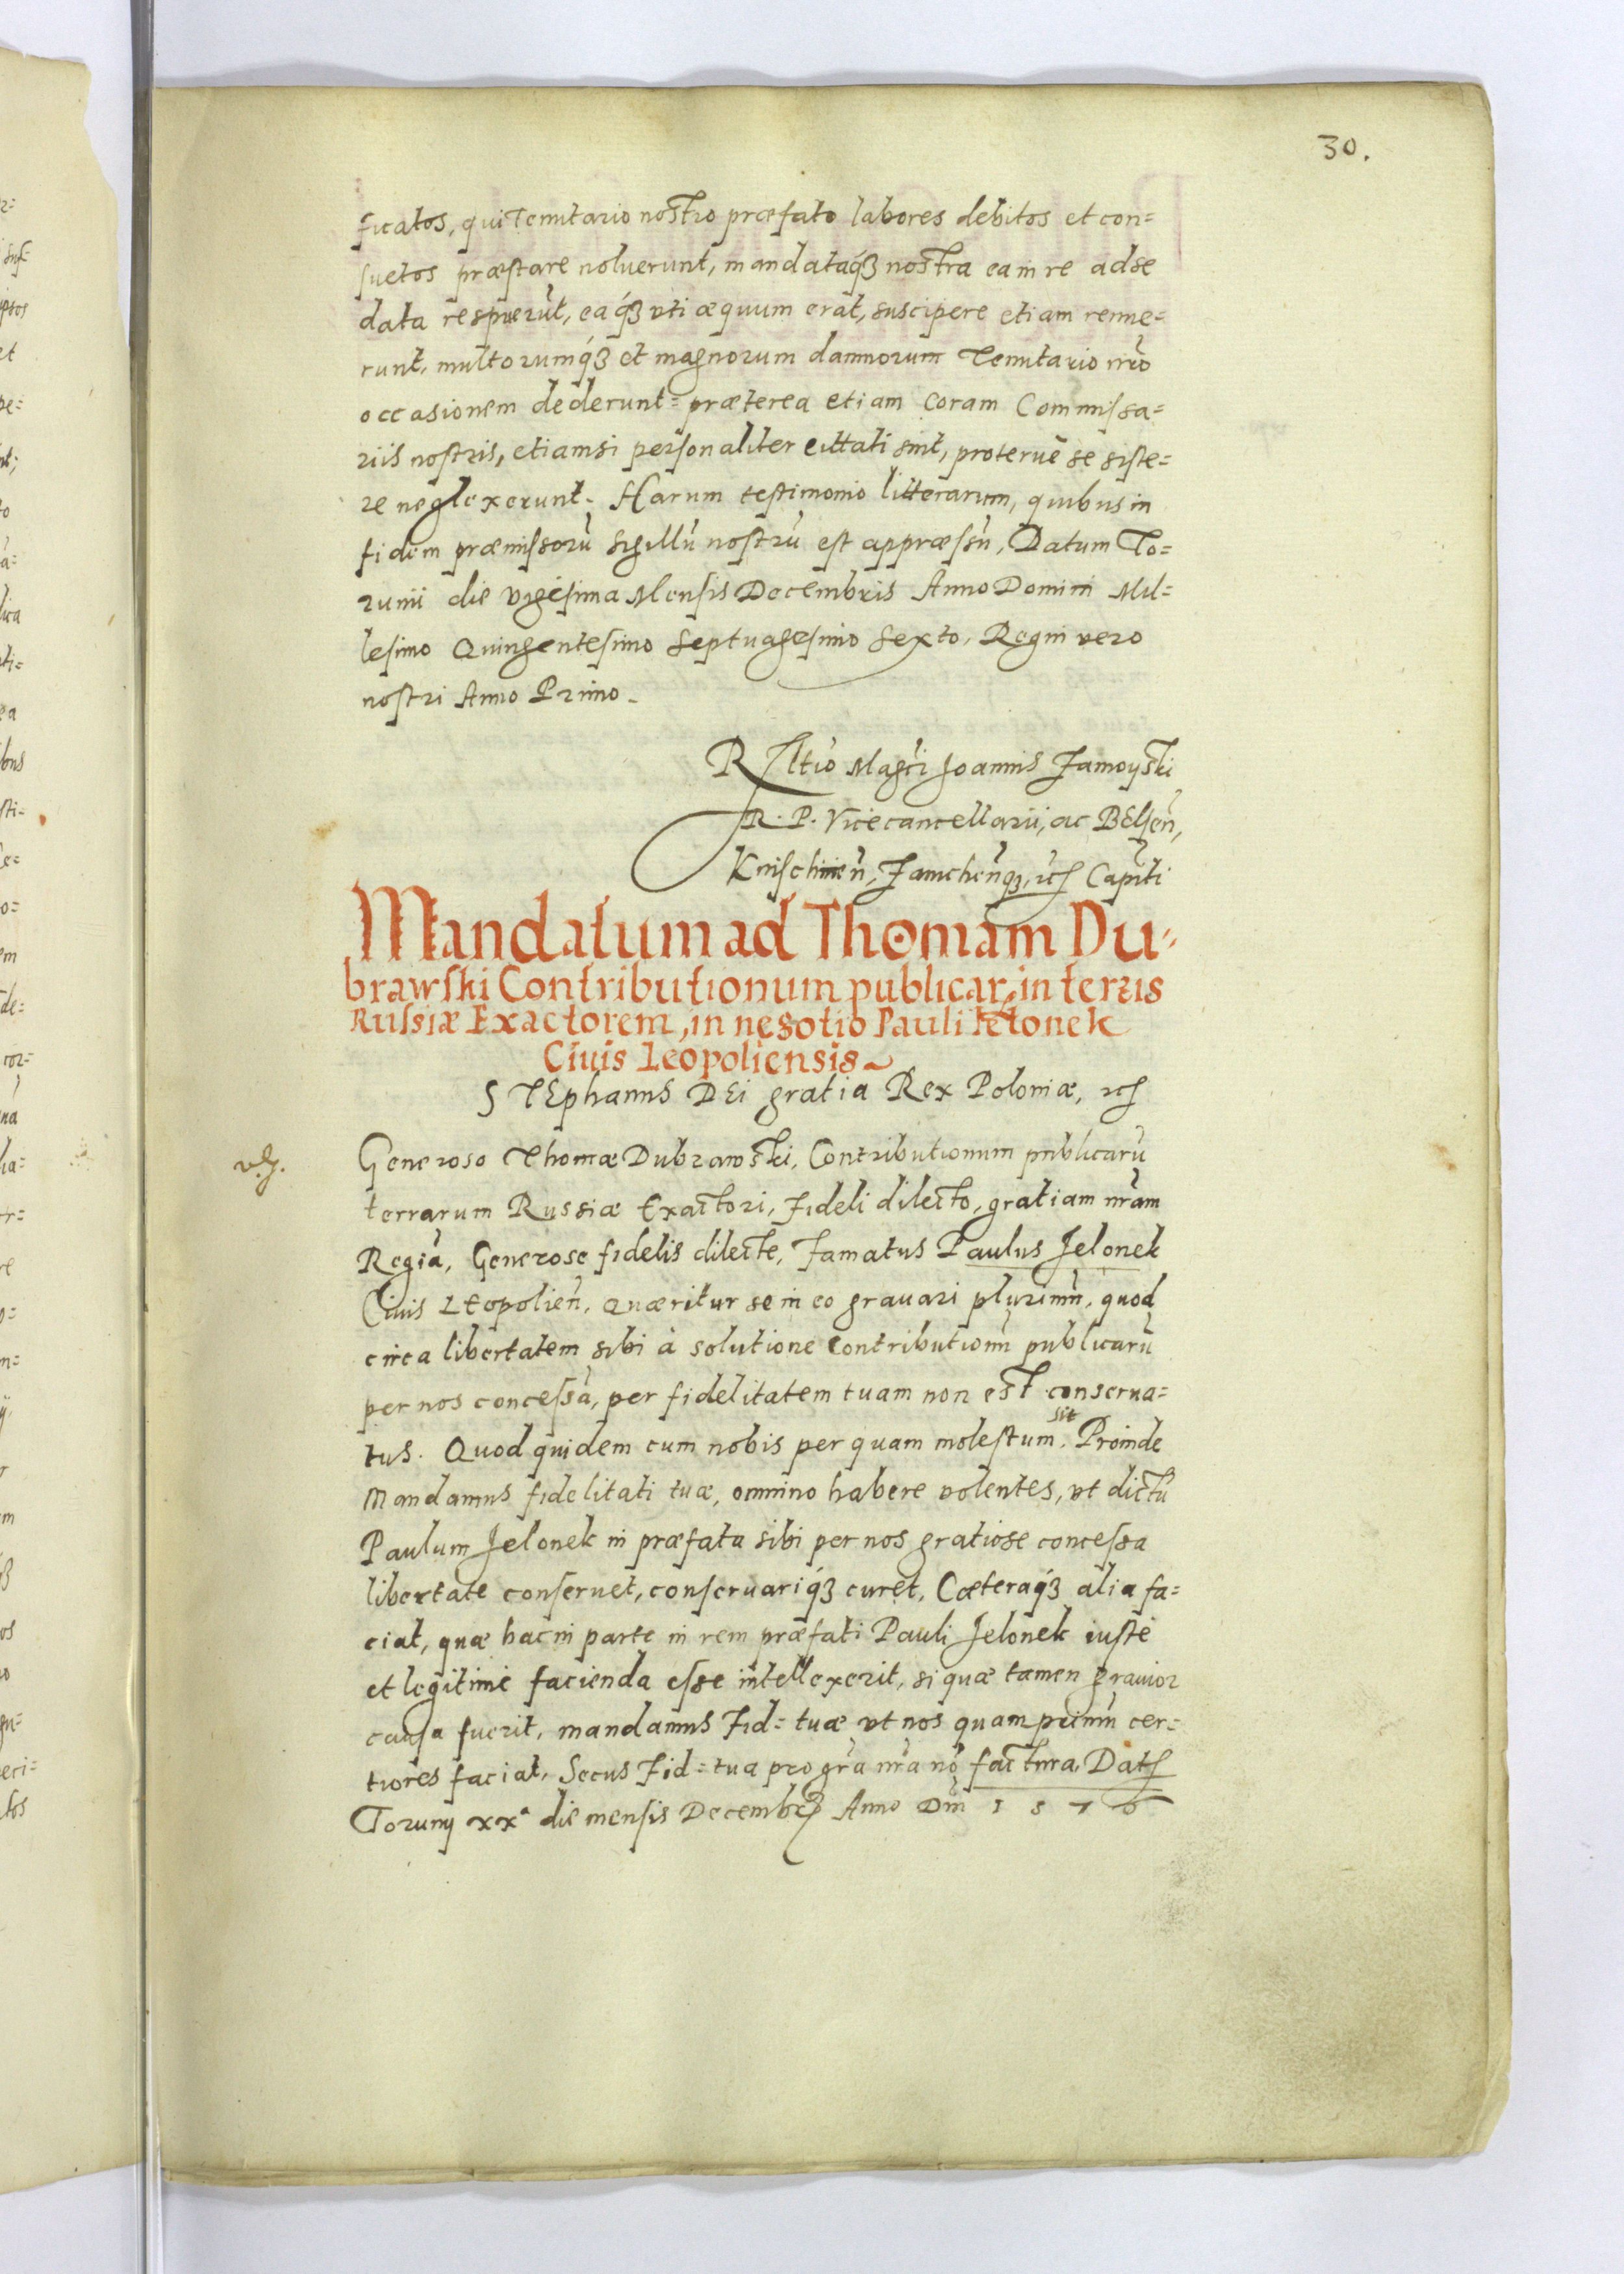 30.
ficatos, qui Tenutario nostro præfato labores debitos et con=
suetos præstare noluerunt, mandataq́ꝫ nostra ea in re ad se
data respuerūt, eaq́ꝫ vti æquum erat, suscipere etiam rennue=
runt, multorumq́ꝫ et magnorum damnorum Tenutario nr̃o
occasionem dederunt= præterea etiam coram Commissa=
riis nostris, etiamsi personaliter cittati sint, proteruè se siste=
re neglexerunt. Harum testimonio litterarum, quibus in
fidem præmissorū sigillū nostrū est appræssū, Datum To=
runii die vigesima Mensis Decembris Anno Domini Mil=
lesimo Quingentesimo Septuagesimo Sexto, Regni vero
nostri Anno Primo.
R Magci Joannis Zamoyski
R. P. Vicecancellarii, ac Belsen̄,
Knischinen̄, Zamchen̄qꝫ, ꝛcꝭ Capnti
Mandatum ad Thomam Du-
brawski Contributionum publicar, in terris
Russiæ Exactorem, in negotio Pauli Ielonek
Ciuis Leopoliensis
STEphanus DEi gratia Rex Poloniæ, ꝛcꝭ
Generoso Thomæ Dubrawski, Contributionum publicarū
terrarum Russiæ Exactori, Fideli dilecto, gratiam nr̃am
Regiā, Generose fidelis dilecte, Famatus Paulus Jelonek
Ciuis Leopolien̄, quæritur se in eo grauari plurimū, quod
circa libertatem sibi à solutione contributionū publicarū
per nos concessā, per fidelitatem tuam non est conserua=
sit
tus. Quod quidem cum nobis per quam molestum. Proinde
Mandamus fidelitati tuæ, omnino habere volentes, vt dictū
Paulum Jelonek in præfata sibi per nos gratiose concessa
libertate conseruet, conseruariq́ꝫ curet, Cæteraq́ꝫ alia fa=
ciat, quæ hac in parte in rem præfati Pauli Jelonek iustè
et legitimè facienda esse intellexerit, si quæ tamen grauior
causa fuerit, mandamus Fid= tuæ vt nos quam primū cer=
tiores faciat, Secus Fid= tua pro gr̃a nr̃a nō factura. Datꝭ
Toruny xxª die mensis Decembrꝭ Anno Dnī 1576